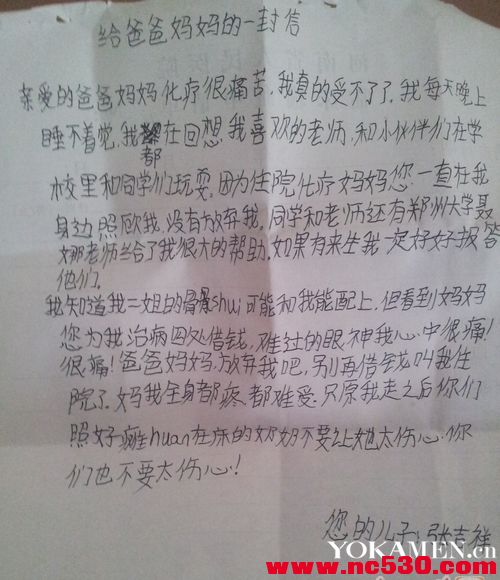 给爸爸妈妈的一封信
亲爱的爸爸妈妈化疗很痛苦,我真的受不了了.我每天晚上
睡不着觉,我都在回想,我喜欢的老师,和小伙伴们在学
校里和同学们玩耍,因为住院化疗妈妈您一直在我
身边照顾我,没有放弃我.同学和老师还有郑州大学聂
娜老师给了我很大的帮助.如果有来生我一定好好报答
他们.
我知道我二姐的骨shui可能和我能配上,但看到妈妈
您为我治病四处借钱,难过的眼神我心中很痛!
很痛!爸爸妈妈,放弃我吧,别再借钱叫我住
院了.妈我全身都疼.都难受.只原我走之后你们
照好瘫huan在床的奶奶不要让她太伤心.你
们也不要太伤心!
您的儿子:张吉祥
YOKAMEN.cn
www.nc530.com